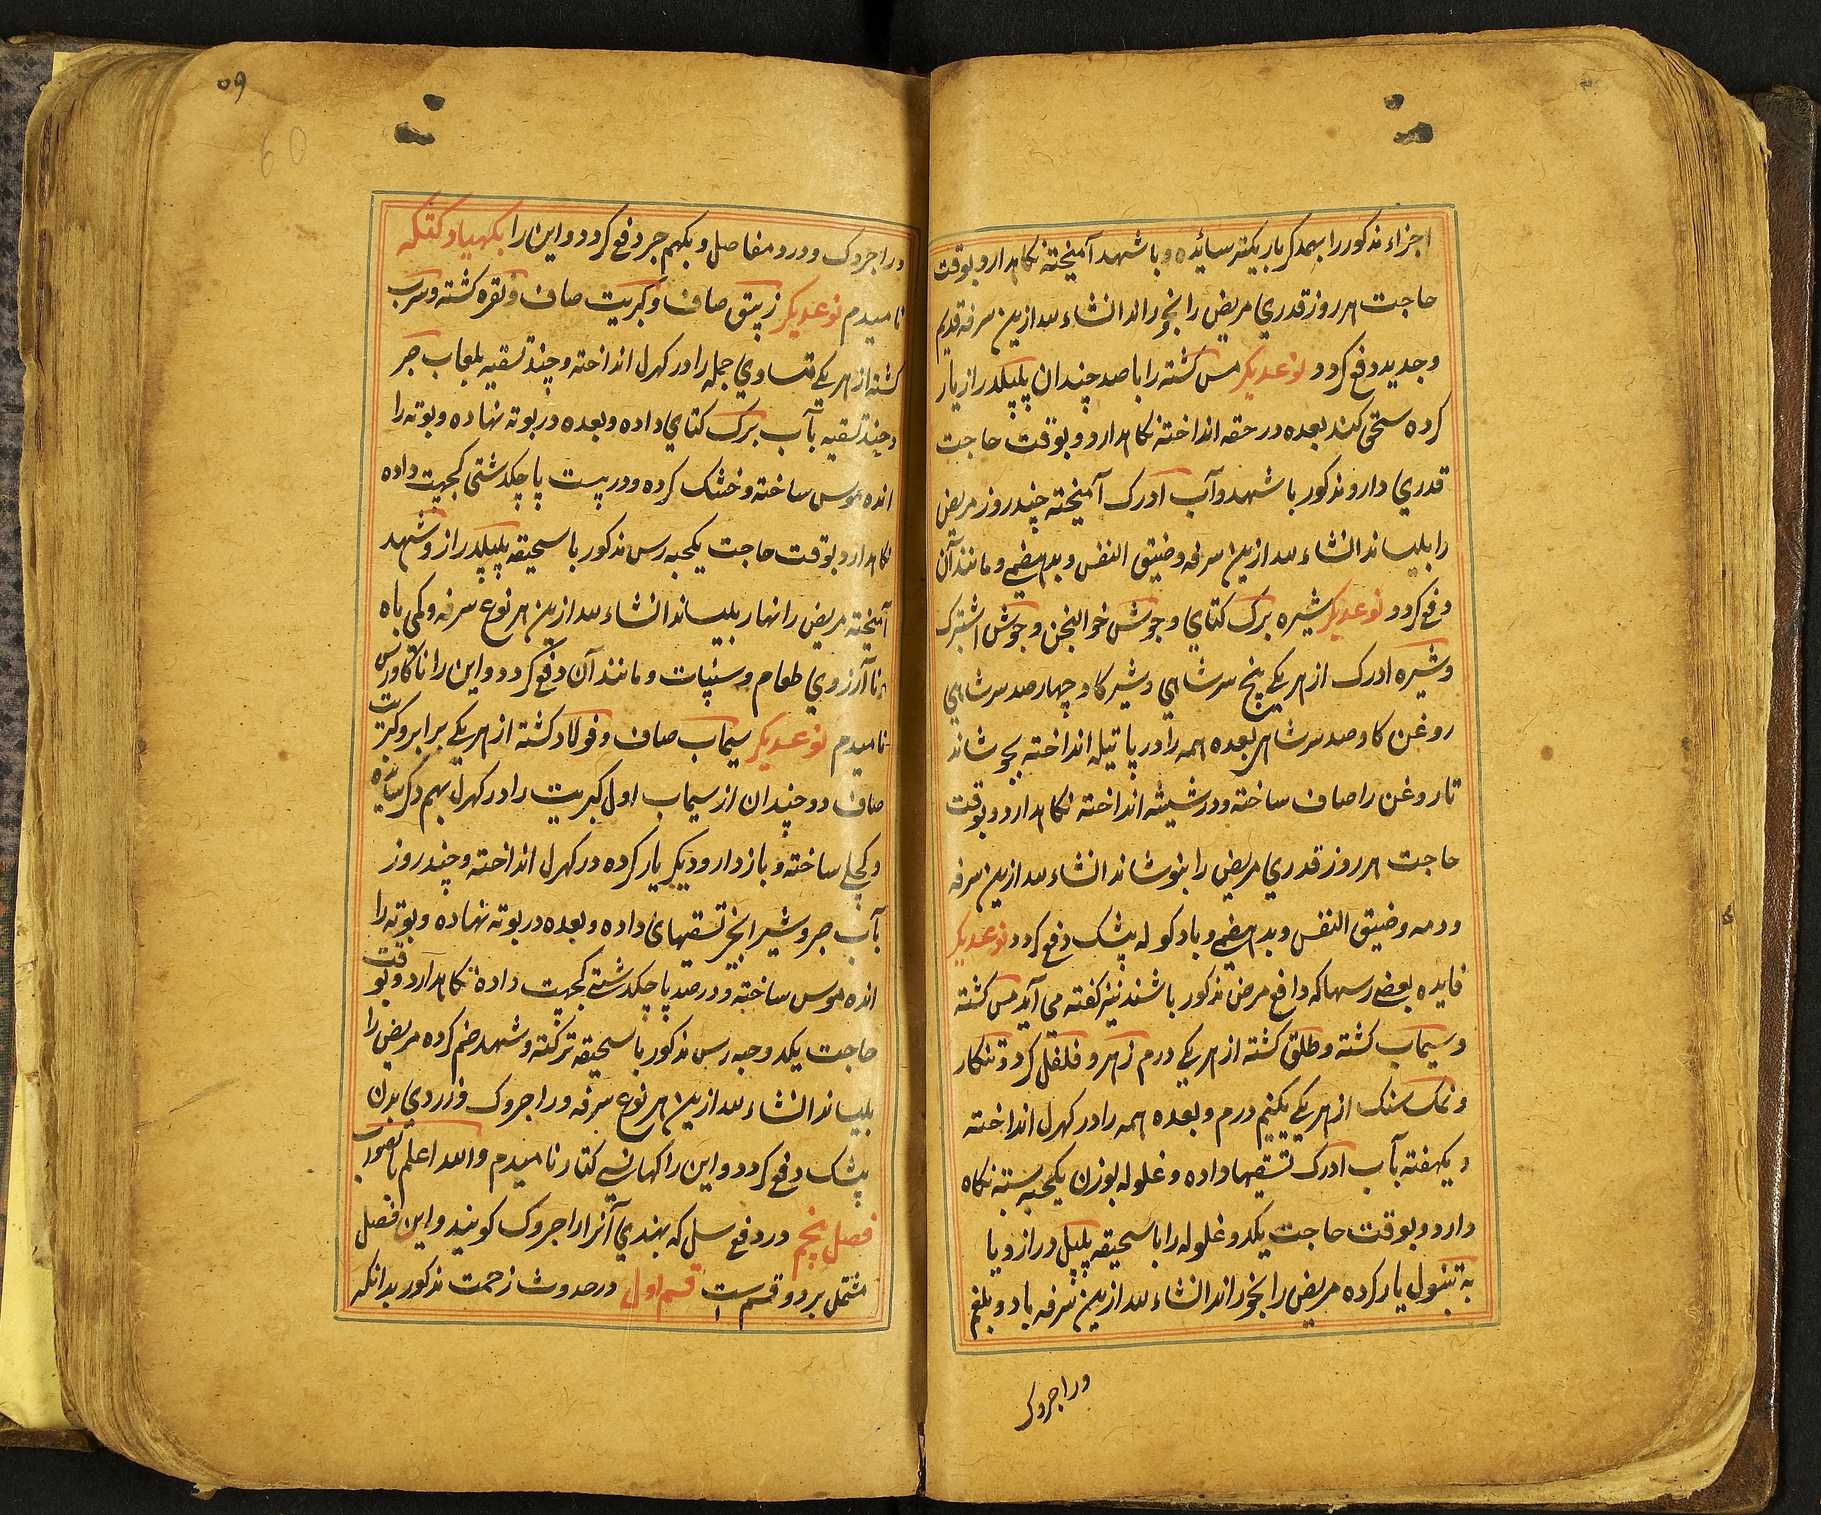 اجزاء مذکور را بهمدکر باریکتر سائیده و با شهد آمیخته نکاهدارد و بوقت
حاجت هر روز قدري مریض را بخوراند انشاءلله ازین سرفه قدیم
و جدید دفع کردد نوعدیکر مس کشته را با صد چندان پلپلدراز یار
کرده سحق کند بعده در حقه انداخته نکاهدارد و بوقت حاجت
قدري دارو مذکور با شهد و آب ادرک آمیخته چند روز مریض
را بلیساند انشاءلله ازین سرفه و ضیق النفس و بدهضمي و مانند آن
دفع کردد نوعدیکر شیره برک کتاي و جوشن خوالنجن و جوشن اشترک
و شیره ادرک از هر یکي پنج سرشاهي و شیر کاو چهار صد سرشاهي
روغن کاو صد سرشاهي بعده همه را در پاتیله انداخته بجوشاند
تا روغن را صاف ساخته و در شیشه انداخته نکاهدارد و بوقت
حاجت هر روز قدري مریض را بنوشاند انشاءلله ازین سرفه
و دمه و ضیق النفس و بدهضمي و باد کوله بیشک دفع کردد نوعدیکر
فایده بعضي رسها که دافع مرض مذکور باشند نیز کفته مي آید مس کشته
و سیماب کشته و طلق کشته از هر یکي درم زهر و فلفل کرد و تنکار
و نمک سنک از هر یکي یکنیم درم و بعده همه را در کهرل انداخته
و یکهفته بآب ادرک تسقیها داده و غلوله بوزن یکحبه بسته نکاه
دارد و بوقت حاجت یکدو غلوله را با سحیقه پلپل دراز و یا
به تنبول یار کرده مریض را بخوراند انشاءلله ازین سرفه باد و بلغم
و راجروک
۵۹
60
و راجروک و درد مفاصل و بکهم جر دفع کردد و این را
نامیدم نوعدیکر زیبق صاف و کبریت صاف و نقره کشته و سرب
کشته از هر یکي متساوي جمله را در کهرل انداخته و چند تسقیه بلعاب صبر
و چند تسقیه بآب برک کتاي داده و بعده در بوته نهاده و بوته را
انده موس ساخته و خشک کرده و در بیست پاچکدشتي کجپت داده
نکاهدارد و بوقت حاجت یکحبه رس مذکور با سحیقه پلپلدراز و شهد
آمیخته مریض را نهار بلیساند انشاءلله ازین هر نوع سرفه و کمي باه
و ناآرزوي طعام و سنپات و مانند آن دفع کردد و این را
نامیدم نوعدیکر سیماب صاف و فولاد کشته از هر یکي برابر و کبریت
صاف دوچندان از سیماب اول کبریت را در کهرل بهم دکر سائیده
و کجلي ساخته و باز دارو دیکر یار کرده در کهرل انداخته و چند روز
بآب صبر و شیر انجیر تسقیهاي داده و بعده در بوته نهاده و بوته را
انده موس ساخته و در صد پاچکدشتي کجپت داده نکاهدارد و بوقت
حاجت یکدو حبه رس مذکور با سحیقه ترکته و شهد ضم کرده مریض را
بلیساند انشاءلله ازین هر نوع سرفه و راجروک و زردي بدن
بیشک دفع کردد و این را کهانسي کتار نامیدم والله اعلم بالصواب
فصل پنجم در دفع سل که بهندي آنرا راجروک کویند و این فصل
مشتمل بر دو قسم است قسم اول در حدوث زحمت مذکور بدانکه